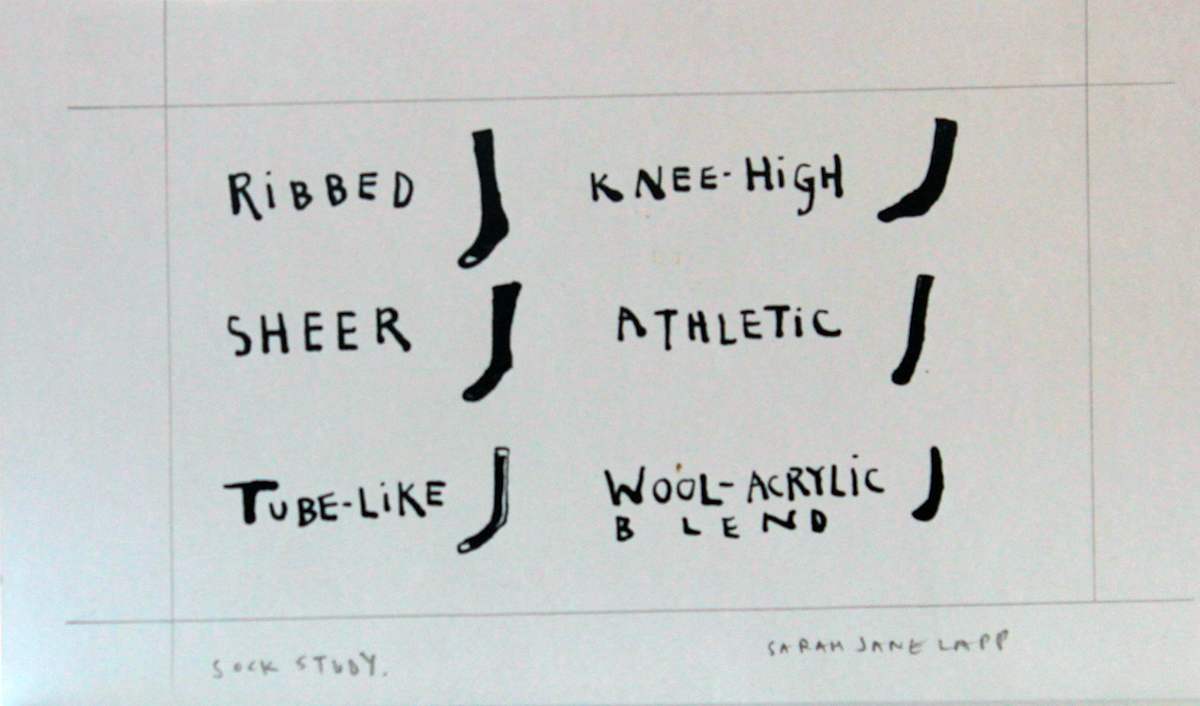 RiBBED
KNEE-HiGH
SHEER
ATHLETiC
TUBE-LiKE
WOOL-ACRYLiC
BLEND
SOCK STUDY.
SARAH JANE LAPP